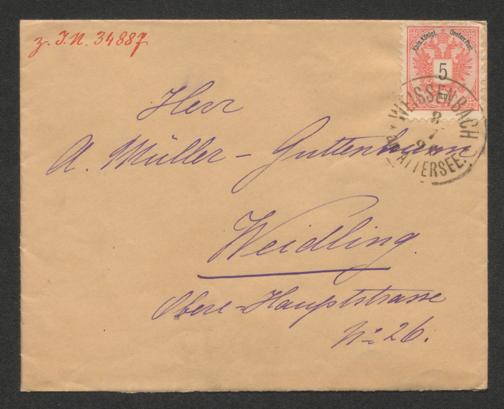 z. I.N. 34887
Kais. Königl. Oesterr. Post.
5
WEISSENBACH
8
7
ATTERSEE.
Herr
A. Müller-Guttenbrunn
Weidling.
Obere-Hauptstrasse
No 26.